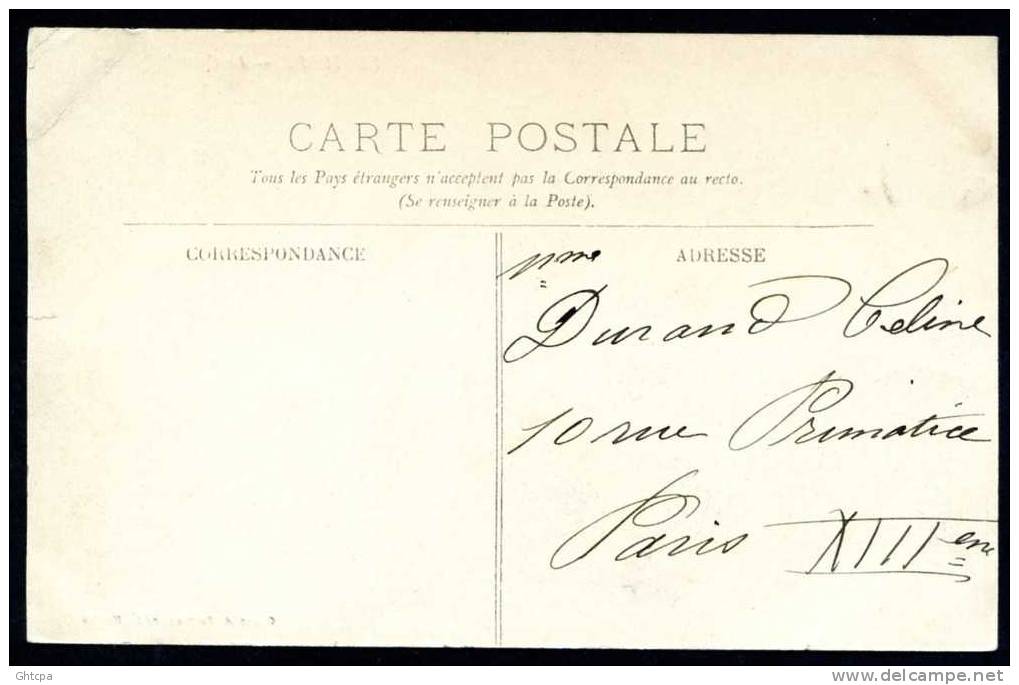 CARTE POSTALE
Tous les Pays étrangers n'acceptent pas la Correspondance au recto.
(Se renseigner à la Poste).
CORRESPONDANCE
ADRESSE
Mme
Durand Celine
10 rue Primatice
Paris XIIIeme
Ghtcpa
www.delcampe.net